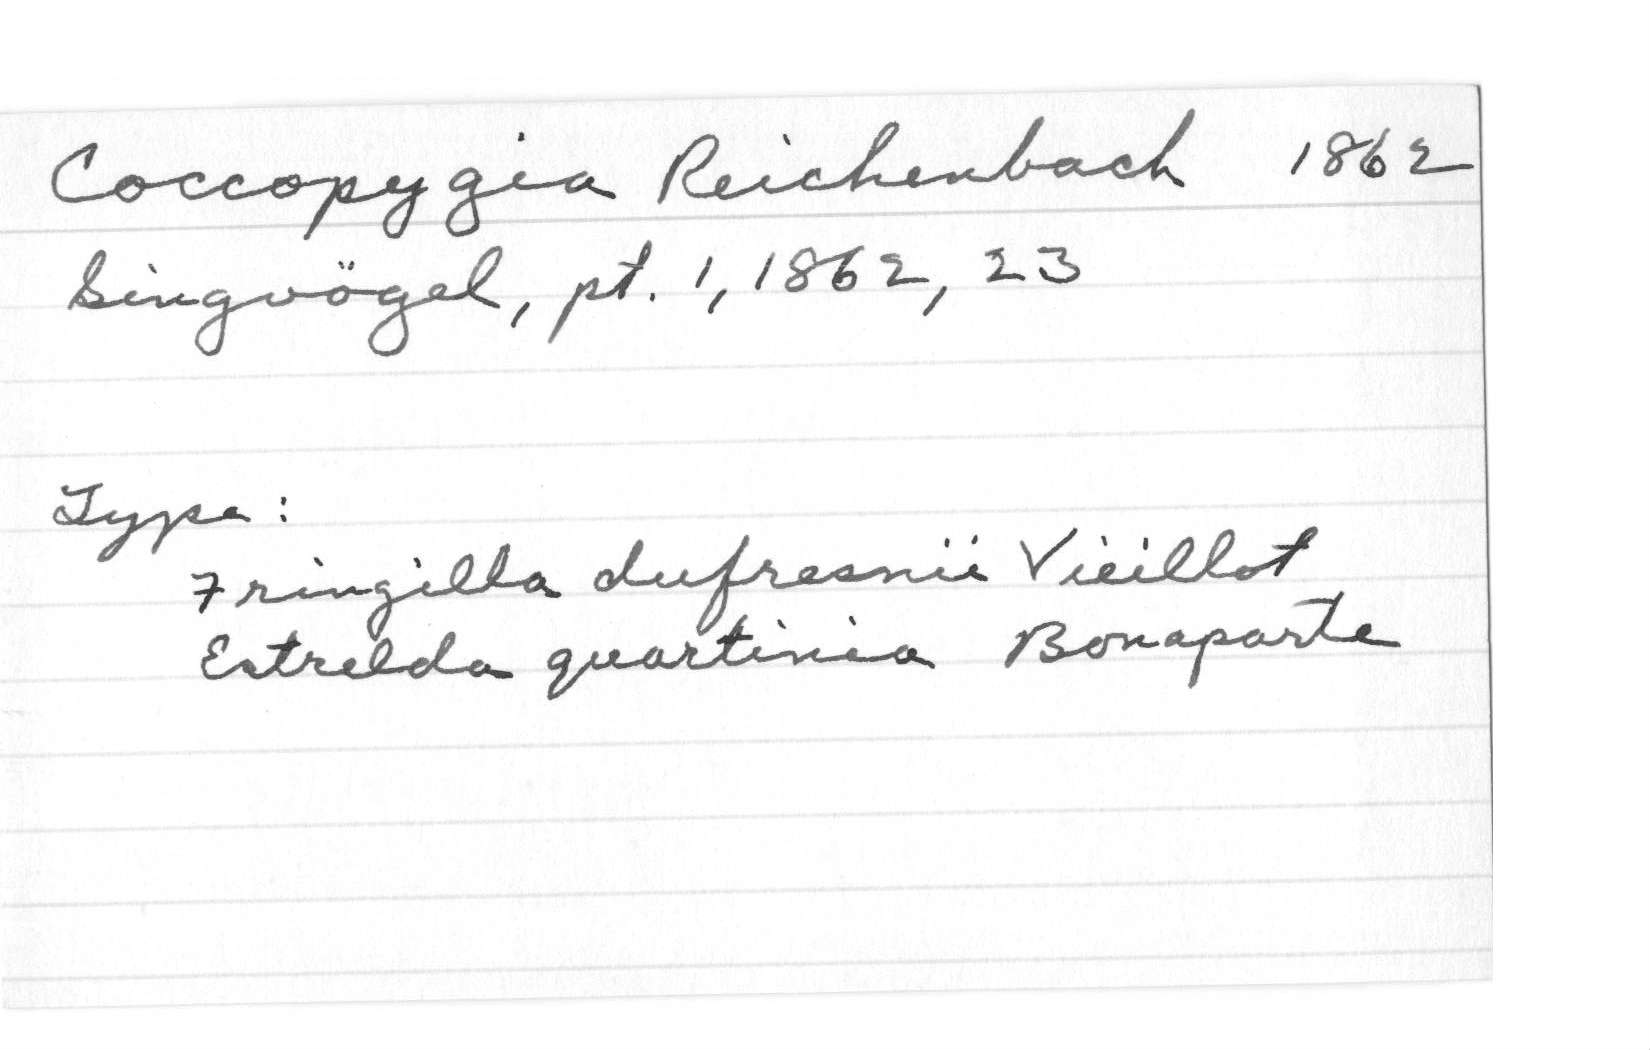 Coccopygia Reichenbach 1862
Singvögel, pt. 1, 1862, 23
Type:
Fringilla dufresnii Vieillot
Estrelda quartinia Bonaparte